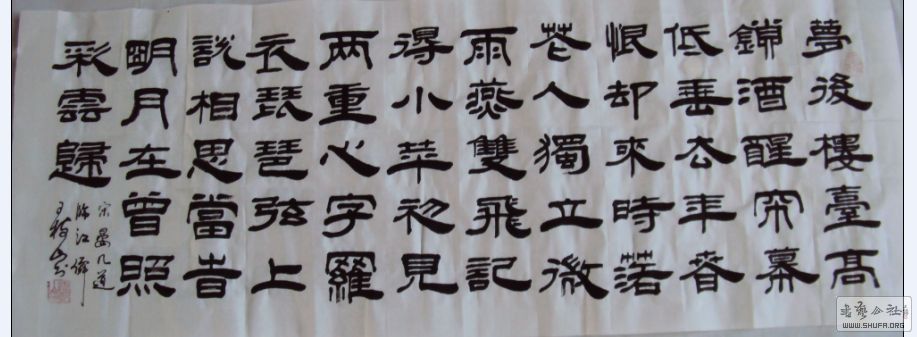 夢後樓臺高
鎖酒醒帘幕
低垂去年春
恨却來時落
花人獨立微
雨燕雙飛記
得小苹初見
两重心字羅
衣琵琶弦上
説相思當旹
明月在曾照
彩雲歸
宋晏几道
臨江僊
WWW.SHUFA.ORG